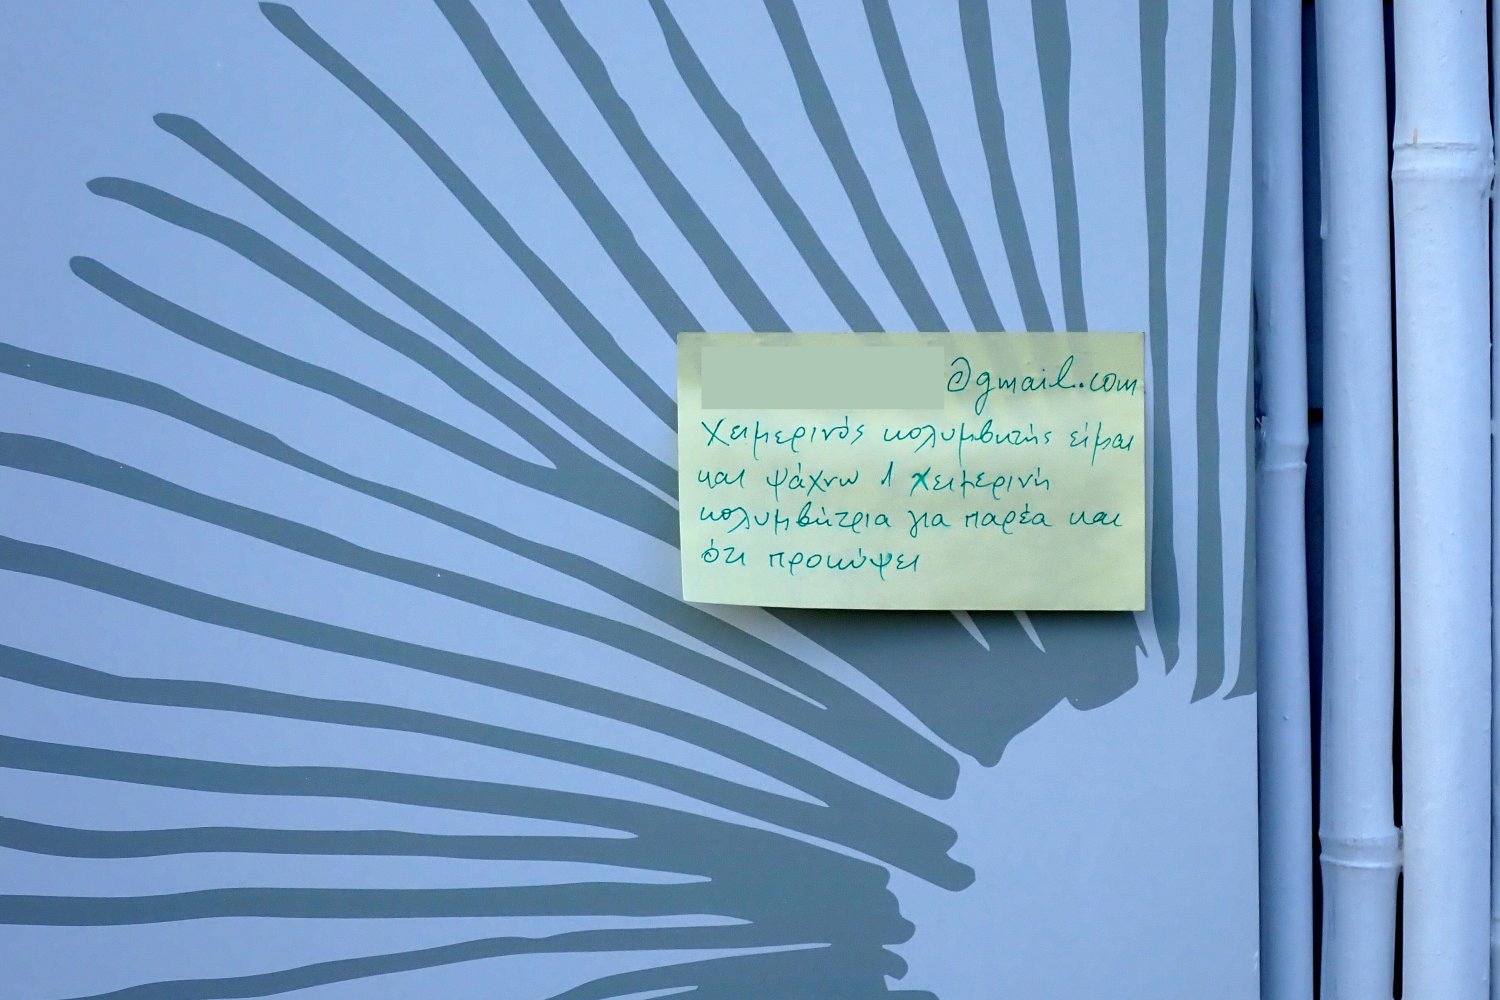 @gmail.com
Χειμερινός κολυμβητής είμαι
και ψάχνω 1 χειμερινή
κολυμβήτρια για παρέα και
ότι προκύψει